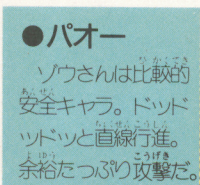 ●パオー
ゾウさんは比較的
安全キャラ。ドッド
ッドッと直線行進。
余裕たっぷり攻撃だ。